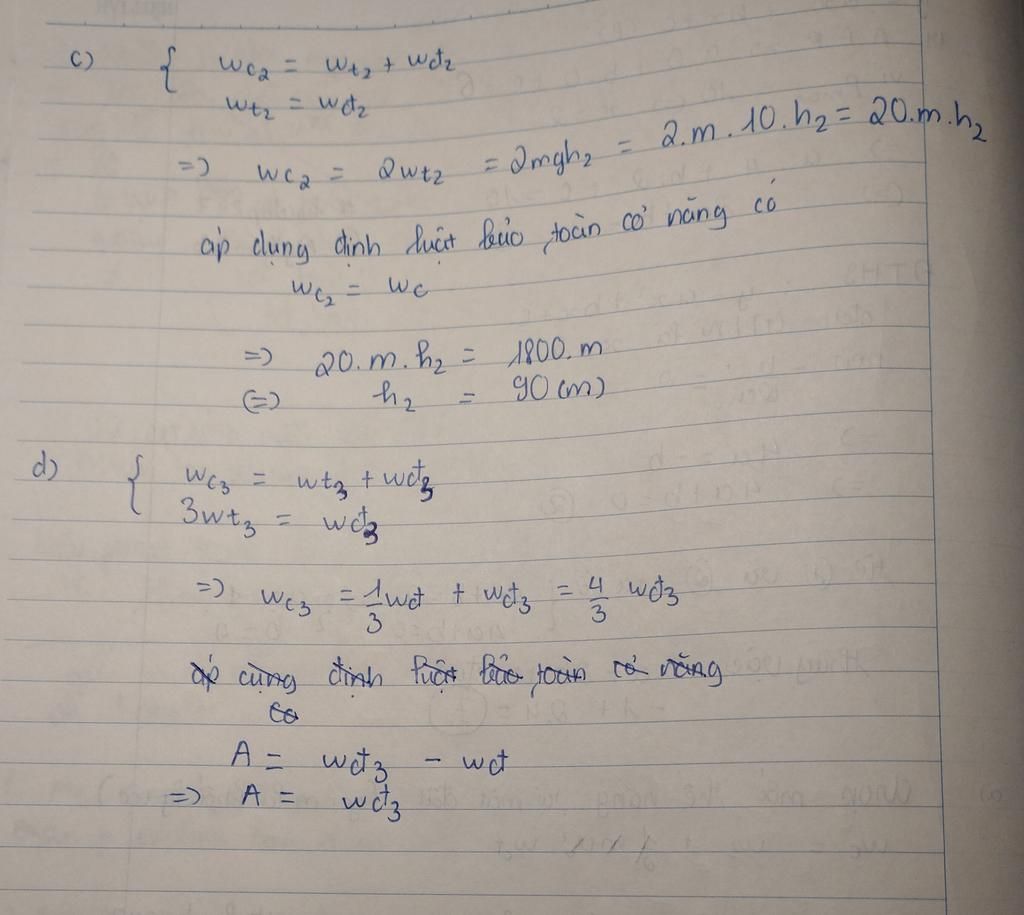 c) { Wc₂ = Wt₂ + Wđ₂
Wt₂ = Wđ₂
=> Wc₂ = 2Wt₂ = 2mgh₂ = 2.m.10.h₂ = 20.m.h₂
áp dụng định luật bảo toàn cơ năng có
Wc₂ = Wc
=> 20.m.h₂ = 1800.m
(=) h₂ = 90 (m)
d) { Wc₃ = Wt₃ + Wđ₃
3Wt₃ = Wđ₃
=> Wc₃ = 1/3 Wđ + Wđ₃ = 4/3 Wđ₃
áp cùng định luật bảo toàn cơ năng
co
A = Wđ₃ - Wđ
=> A = Wđ₃